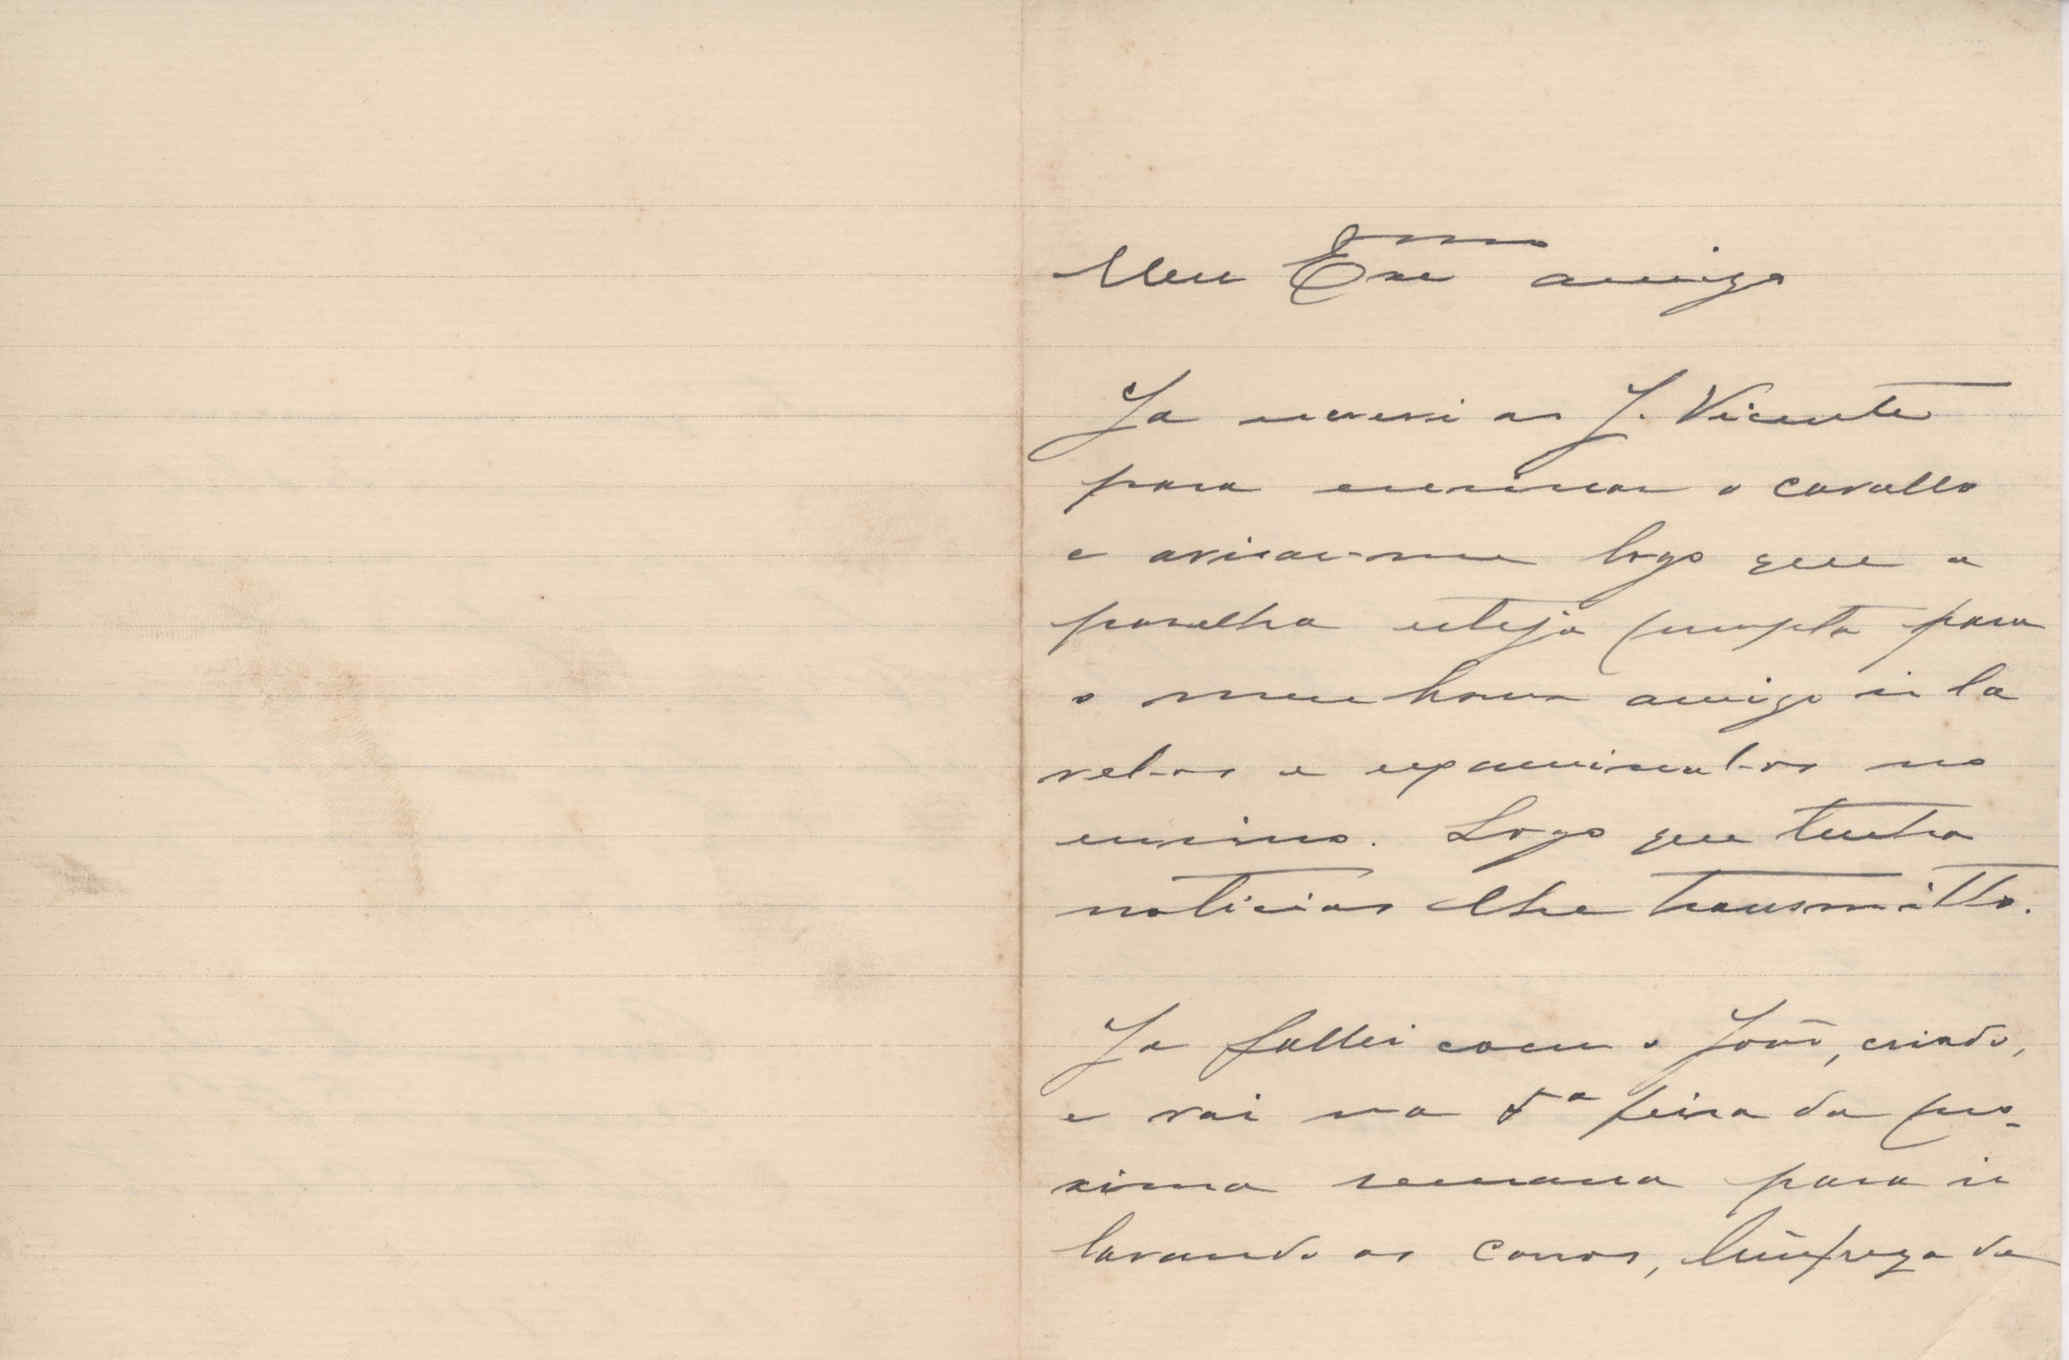 Meu Exmo amigo
Ja escrevi ao J. Vicente
para ensinar o cavallo
e avisar-me logo que a
parelha esteja prompta para
o meu bom amigo ir la
vel-os e expaminal-os no
ensino. Logo que tenha
noticias lhe transmitto.
Ja fallei com o João, criado,
e vai na 5ª feira da pro-
xima semana para ir
lavando os carros, limpeza da